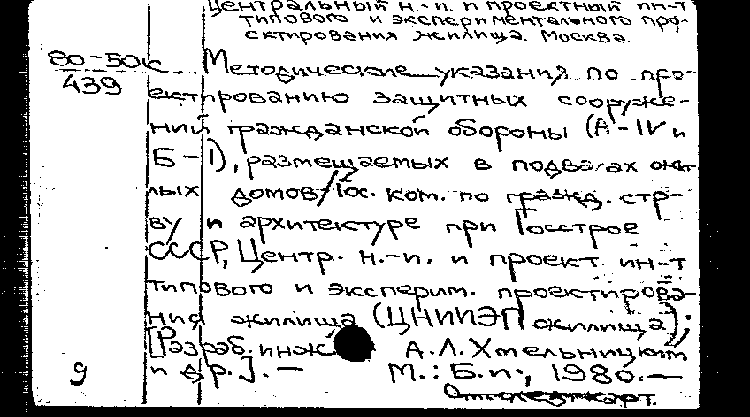 Центральный н.-и. и проектный ин-т
типового и экспериментального про-
ектирования жилища. Москва.
80-50к
439
Методические указания по про-
ектированию защитных сооруже-
ний гражданской обороны (А-IV и
Б-I), размещаемых в подвалах жи-
лых домов/Гос. ком. по гражд. стр-
ву и архитектуре при Госстрое
СССР, Центр. н.-и. и проект. ин-т
типового и эксперим. проектирова-
ния жилища (ЦНИИЭП жилища);
[Разраб. инж. А.Л.Хмельницким
9 и др.]. — М.: Б.и., 1980. —